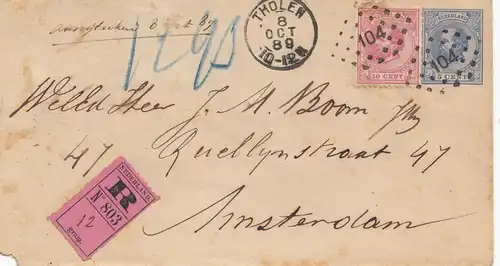 aangeteekend 8 oct 89
THOLEN
8
OCT
89
10-12V
104
104
10 CENT
NEDERLAND
5 CENT
WelEd Heer J. M. Boom
47 Quellynstraat 47
Amsterdam
NEDERLAND
R
No 803
12
gram.